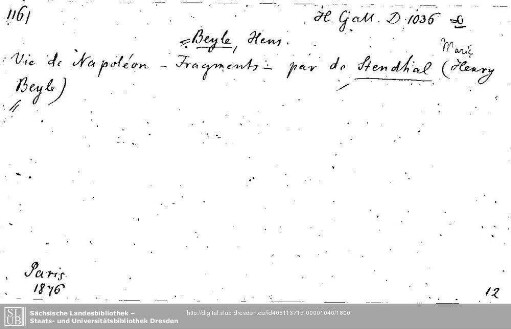 1161
H. Gall. D. 1036
= Beyle, Henr.
Vie de Napoléon – Fragments – par de Stendhal (Marie Henry
Beyle)
Paris
1876
12
Sächsische Landesbibliothek –
Staats- und Universitätsbibliothek Dresden